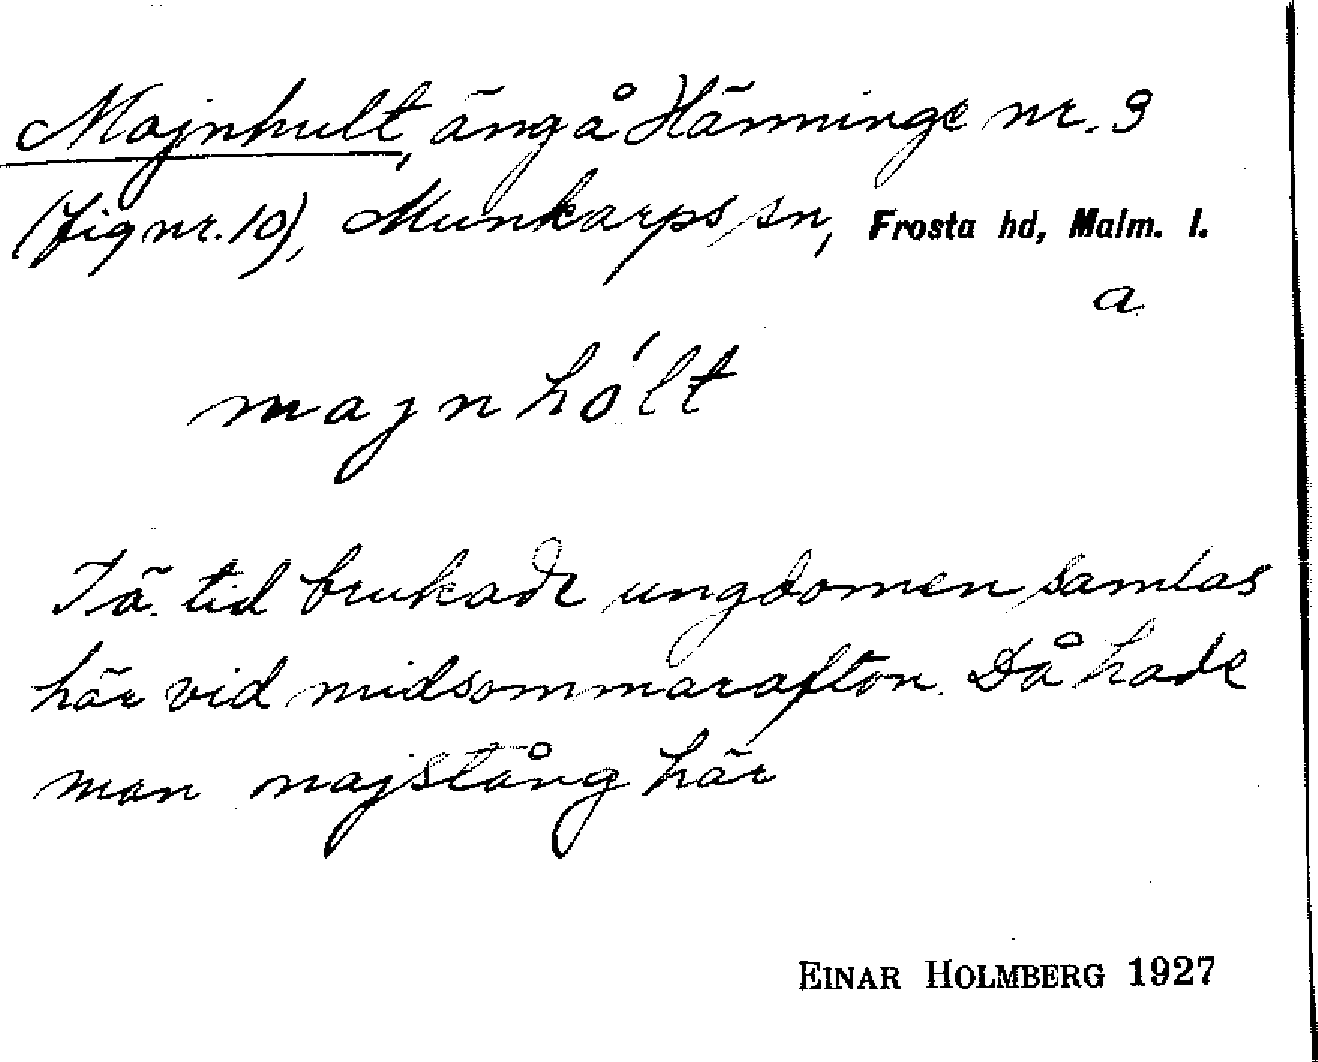 Majnhult, äng å Hänninge nr. 3
(fig nr. 10), Munkarps sn, Frosta hd, Malm. l.
a
majnhólt
I ä. tid brukade ungdomen samlas
här vid midsommarafton. Då hade
man majstång här
EINAR HOLMBERG 1927